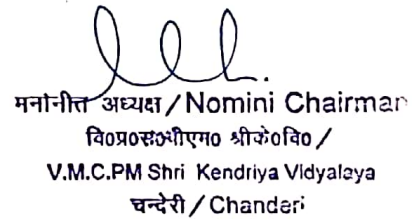 मनोनीत अध्यक्ष / Nomini Chairman
वि०प्र०स०पीएम० श्रीके०वि० /
V.M.C.PM Shri Kendriya Vidyalaya
चन्देरी / Chanderi